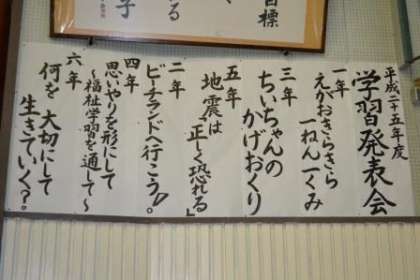 目標
る
子
平成二十五年度
学習発表会
一年
えがおきらきら
一ねん一くみ
三年
ちいちゃんの
かげおくり
五年
地震は「正しく恐れる」
二年
ビーチランドへ行こう♪。
四年
思いやりを形にして
～福祉学習を通して～
六年
何を大切にして
生きていく?